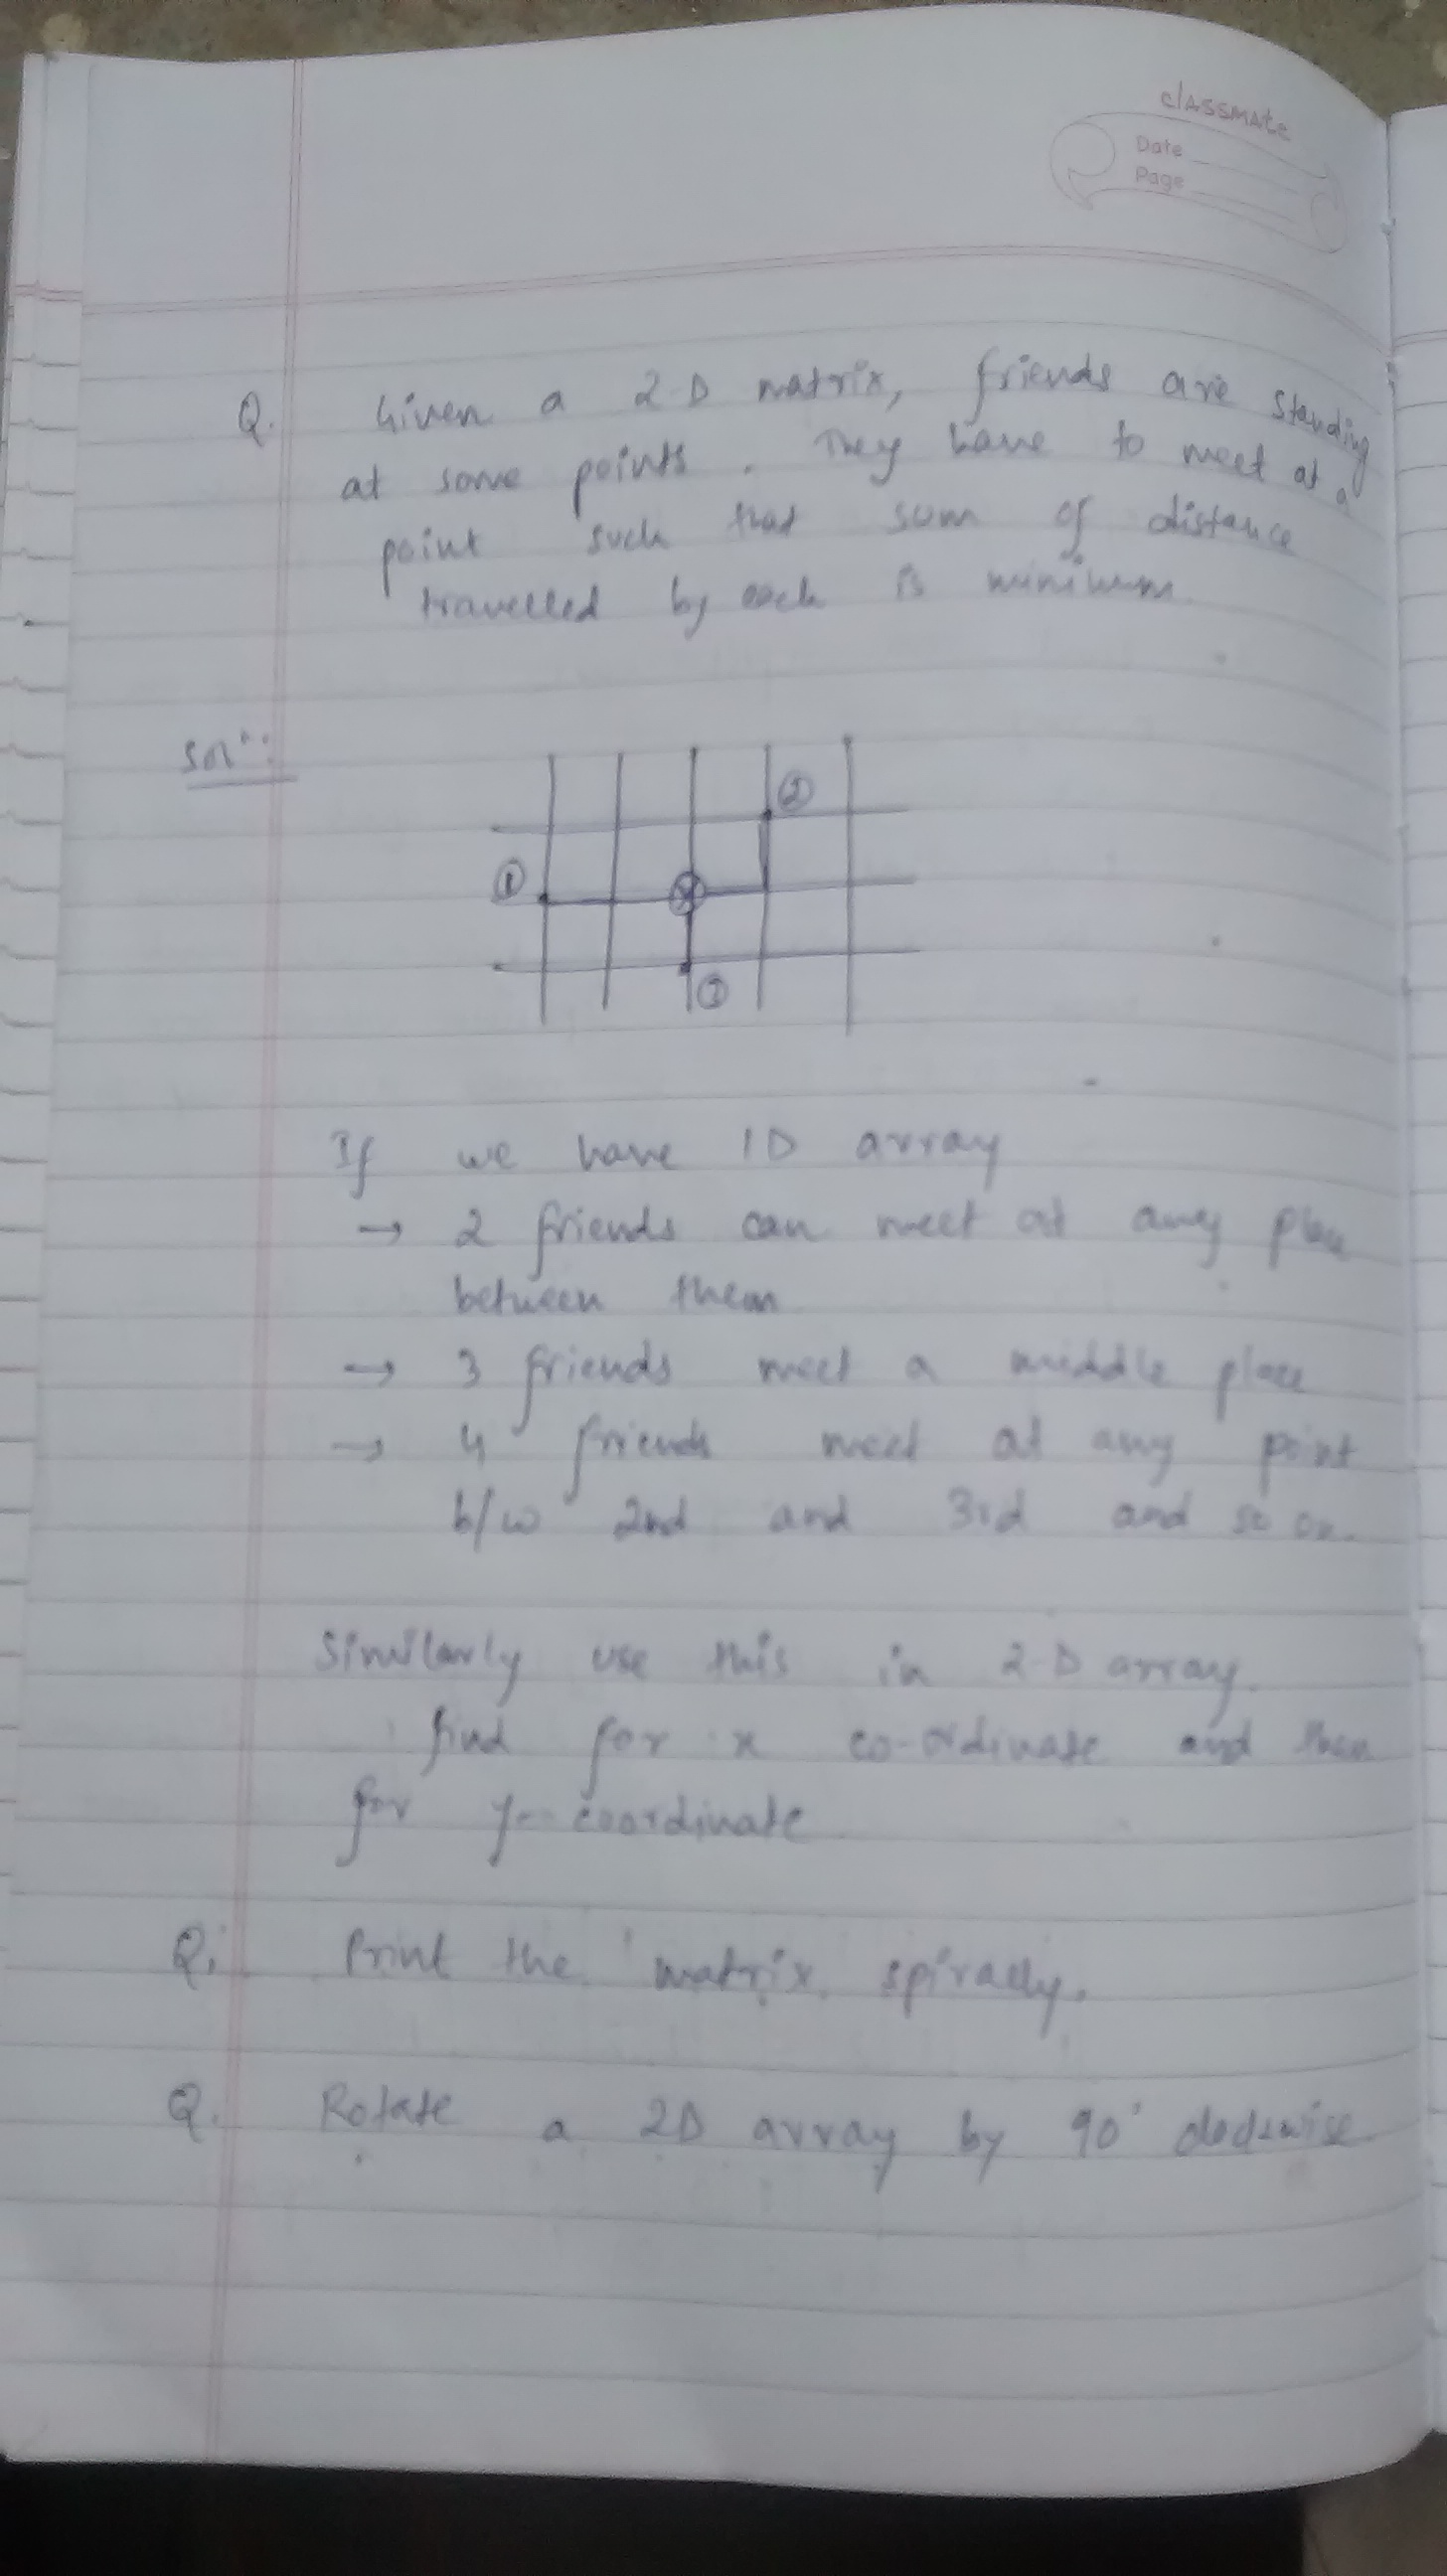 classmate
Date
Page
Q. Given a 2-D matrix, friends are standing
at some points. They have to meet at a
point such that sum of distance
travelled by each is minimum
Solⁿ:
②
①
③
If we have 1D array
→ 2 friends can meet at any place
between them
→ 3 friends meet a middle place
→ 4 friends meet at any point
b/w 2nd and 3rd and so on.
Similarly use this in 2-D array.
find for x co-ordinate and then
for y-coordinate
Q. Print the matrix spirally.
Q. Rotate a 2D array by 90° clockwise